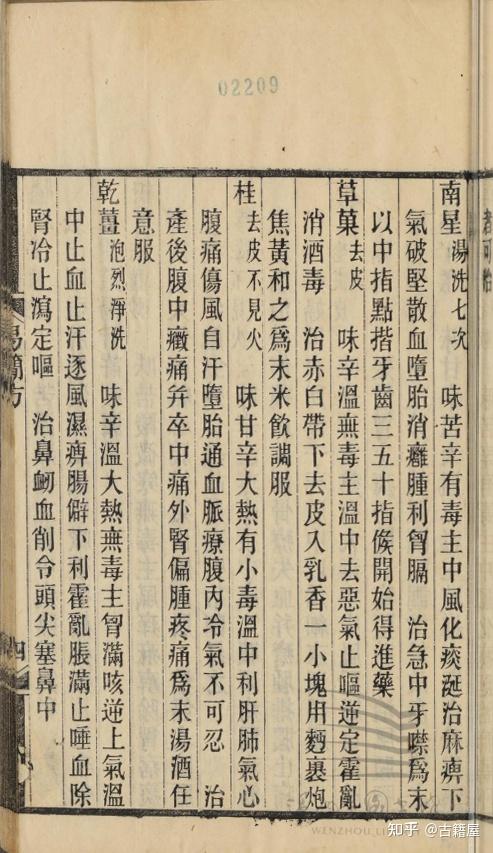 02209
南星 湯洗七次 味苦辛有毒主中風化痰涎治麻痹下
氣破堅散血墮胎消癰腫利胷膈 治急中牙噤爲末
以中指點揩牙齒三五十指候開始得進藥
草菓 去皮 味辛溫無毒主溫中去惡氣止嘔逆定霍亂
消酒毒 治赤白帶下去皮入乳香一小塊用麪裹炮
焦黃和之爲末米飲調服
桂 去皮不見火 味甘辛大熱有小毒溫中利肝肺氣心
腹痛傷風自汗墮胎通血脈療腹內冷氣不可忍 治
產後腹中癥痛并卒中痛外腎偏腫疼痛爲末湯酒任
意服
乾薑 泡烈淨洗 味辛溫大熱無毒主胷滿咳逆上氣溫
中止血止汗逐風濕痹腸僻下利霍亂脹滿止唾血除
腎冷止瀉定嘔 治鼻衂血削令頭尖塞鼻中
易簡方
四
WENZHOU LI
知乎 @古籍屋